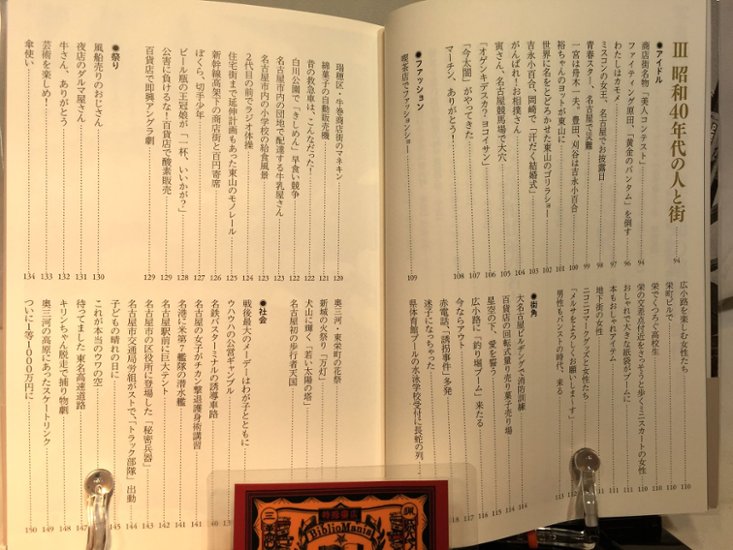 III 昭和40年代の人と街 94
●アイドル
商店街名物「美人コンテスト」 94
ファイティング原田、「黄金のバンタム」を倒す 96
わたしはカモメ 97
ミスコンの女王、名古屋でお披露目 98
青春スター、名古屋で受難 99
一宮は舟木一夫、豊田、刈谷は吉永小百合 100
裕ちゃんのヨットが東山に 101
世界に名をとどろかせた東山のゴリラショー 102
吉永小百合、岡崎で「汗だく結婚式」 103
がんばれ!お相撲さん 104
寅さん、名古屋競馬場で大穴
「オゲンキデスカ?ヨコイサン」
「今太閤」がやってきた
マーチン、ありがとう! 108
●ファッション
喫茶店でファッションショー 109
広小路を楽しむ女性たち 110
栄町ビルで 110
栄でくつろぐ高校生
栄の交差点付近をさっそうと歩くミニスカートの女性
おしゃれで大きな紙袋がブームに
本もおしゃれアイテム
地下街の女性
ニコニコマークグッズと女性たち
「メルサをよろしくお願いしま〜す」
男性もパンストの時代、来る
●街角
大名古屋ビルヂングで消防訓練
百貨店の回転式量り売り菓子売り場
星空の下、愛を誓う
広小路に「釣り堀ブーム」来たる
今ならアウト
赤電話、「誘拐事件」多発
迷子になっちゃった
県体育館プールの水泳学校受付に長蛇の列
瑞穂区・牛巻商店街のマネキン 120
綿菓子の自動販売機 121
昔の救急車は、こんなだった! 122
白川公園で「きしめん」早食い競争 122
名古屋市内の団地で配達する牛乳屋さん 123
名古屋市内の小学校の給食風景 123
2代目の前でラジオ体操 124
住宅街まで延伸計画もあった東山のモノレール 125
新幹線高架下の商店街と百円寄席 126
ぼくら、切手少年 127
ビール瓶の王冠娘が「一杯、いいかが?」 128
公害に負けるな!百貨店で酸素販売 129
百貨店で即興アングラ劇 129
●祭り
風船売りのおじさん 130
夜店のダルマ屋さん 131
牛さん、ありがとう 132
芸術を楽しめ! 133
傘使い 134
奥三河・東栄町の花祭
新城の火祭り「万灯」
犬山に輝く「若い太陽の塔」
名古屋初の歩行者天国
●社会
戦後最大のメーデーはわが子とともに
ウハウハの公営ギャンブル
名鉄バスターミナルの誘導車路
名古屋の女子がチカン撃退護身術講習 141
名港に米第7艦隊の潜水艦 141
名古屋駅前に巨大テント 142
名古屋市の区役所に登場した「秘密兵器」 143
名古屋市交通局労組がストで、「トラック部隊」出動 144
子どもの晴れの日に 145
これが本当のウワの空 146
待ってました東名高速道路 147
キリンちゃん脱走で捕り物劇 148
奥三河の高原にあったスケートリンク 149
ついに1等1000万円に 150
BiblioMania